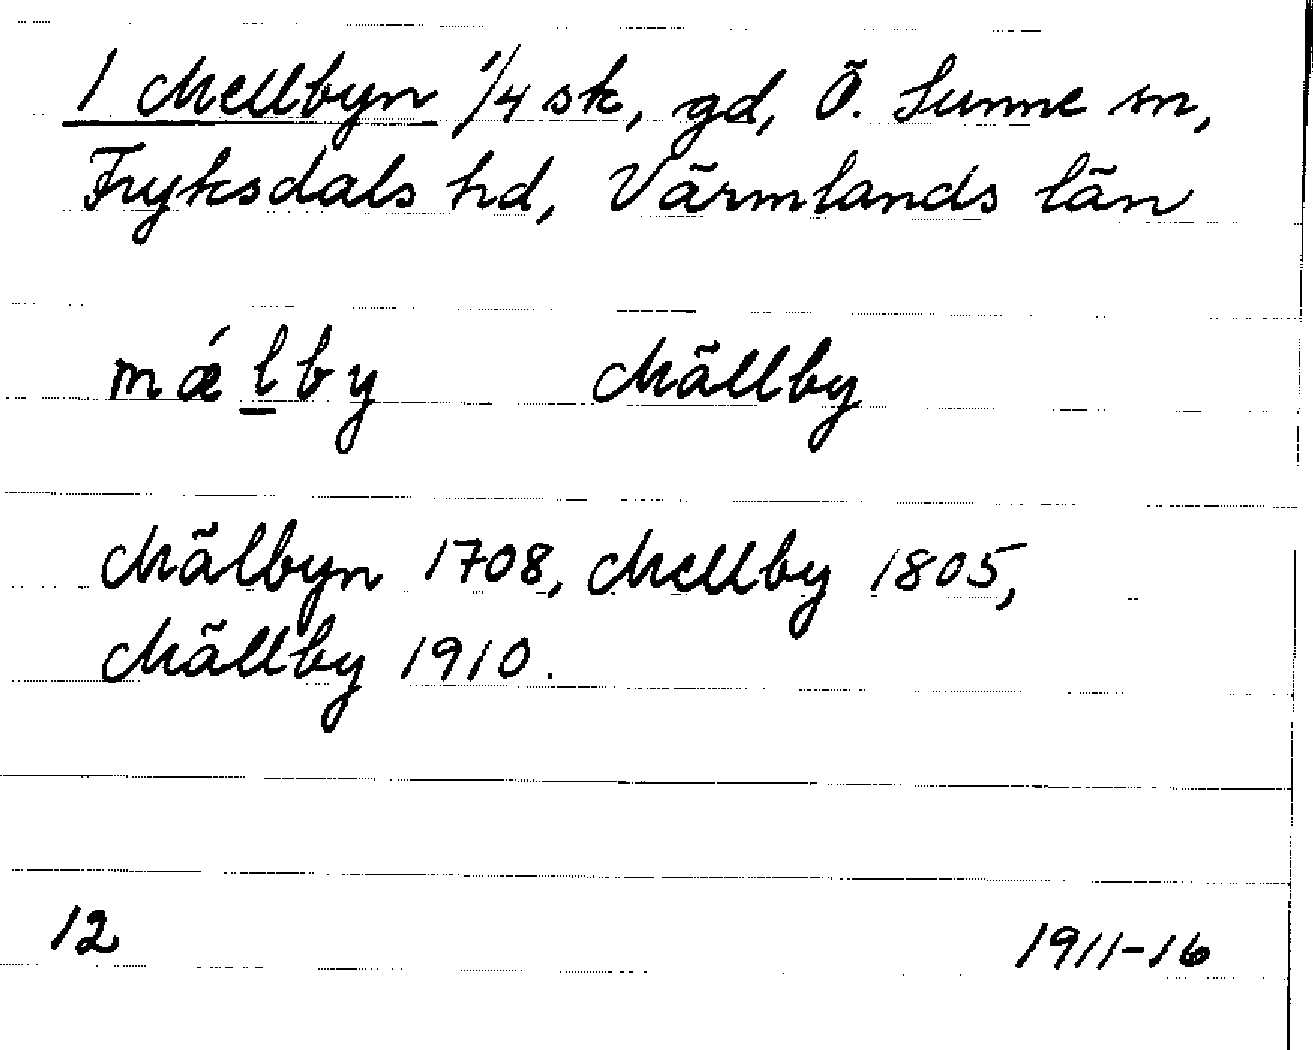 1 Mellbyn 1/4 sk, gd, Ö. Sunne sn,
Fryksdals hd, Värmlands län
mǽl̲by Mällby
Mälbyn 1708, Mellby 1805,
Mällby 1910.
12 1911-16